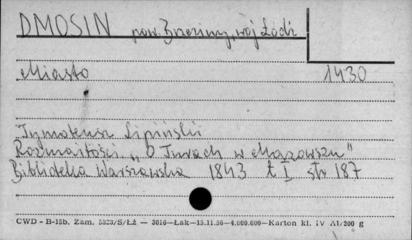 DMOSIN pow. Brzeziny, woj Łódź
Miasto 1430
Tymoteusz Lipiński
Rozmaitości „O Turach w Mazowszu"
Biblioteka Warszawska 1843 t I str 187
CWD - B-15b. Zam. 5323/S/Łż — 3016—Lak—15.11.56—4.000.000—Karton kl. IV A1/200 g